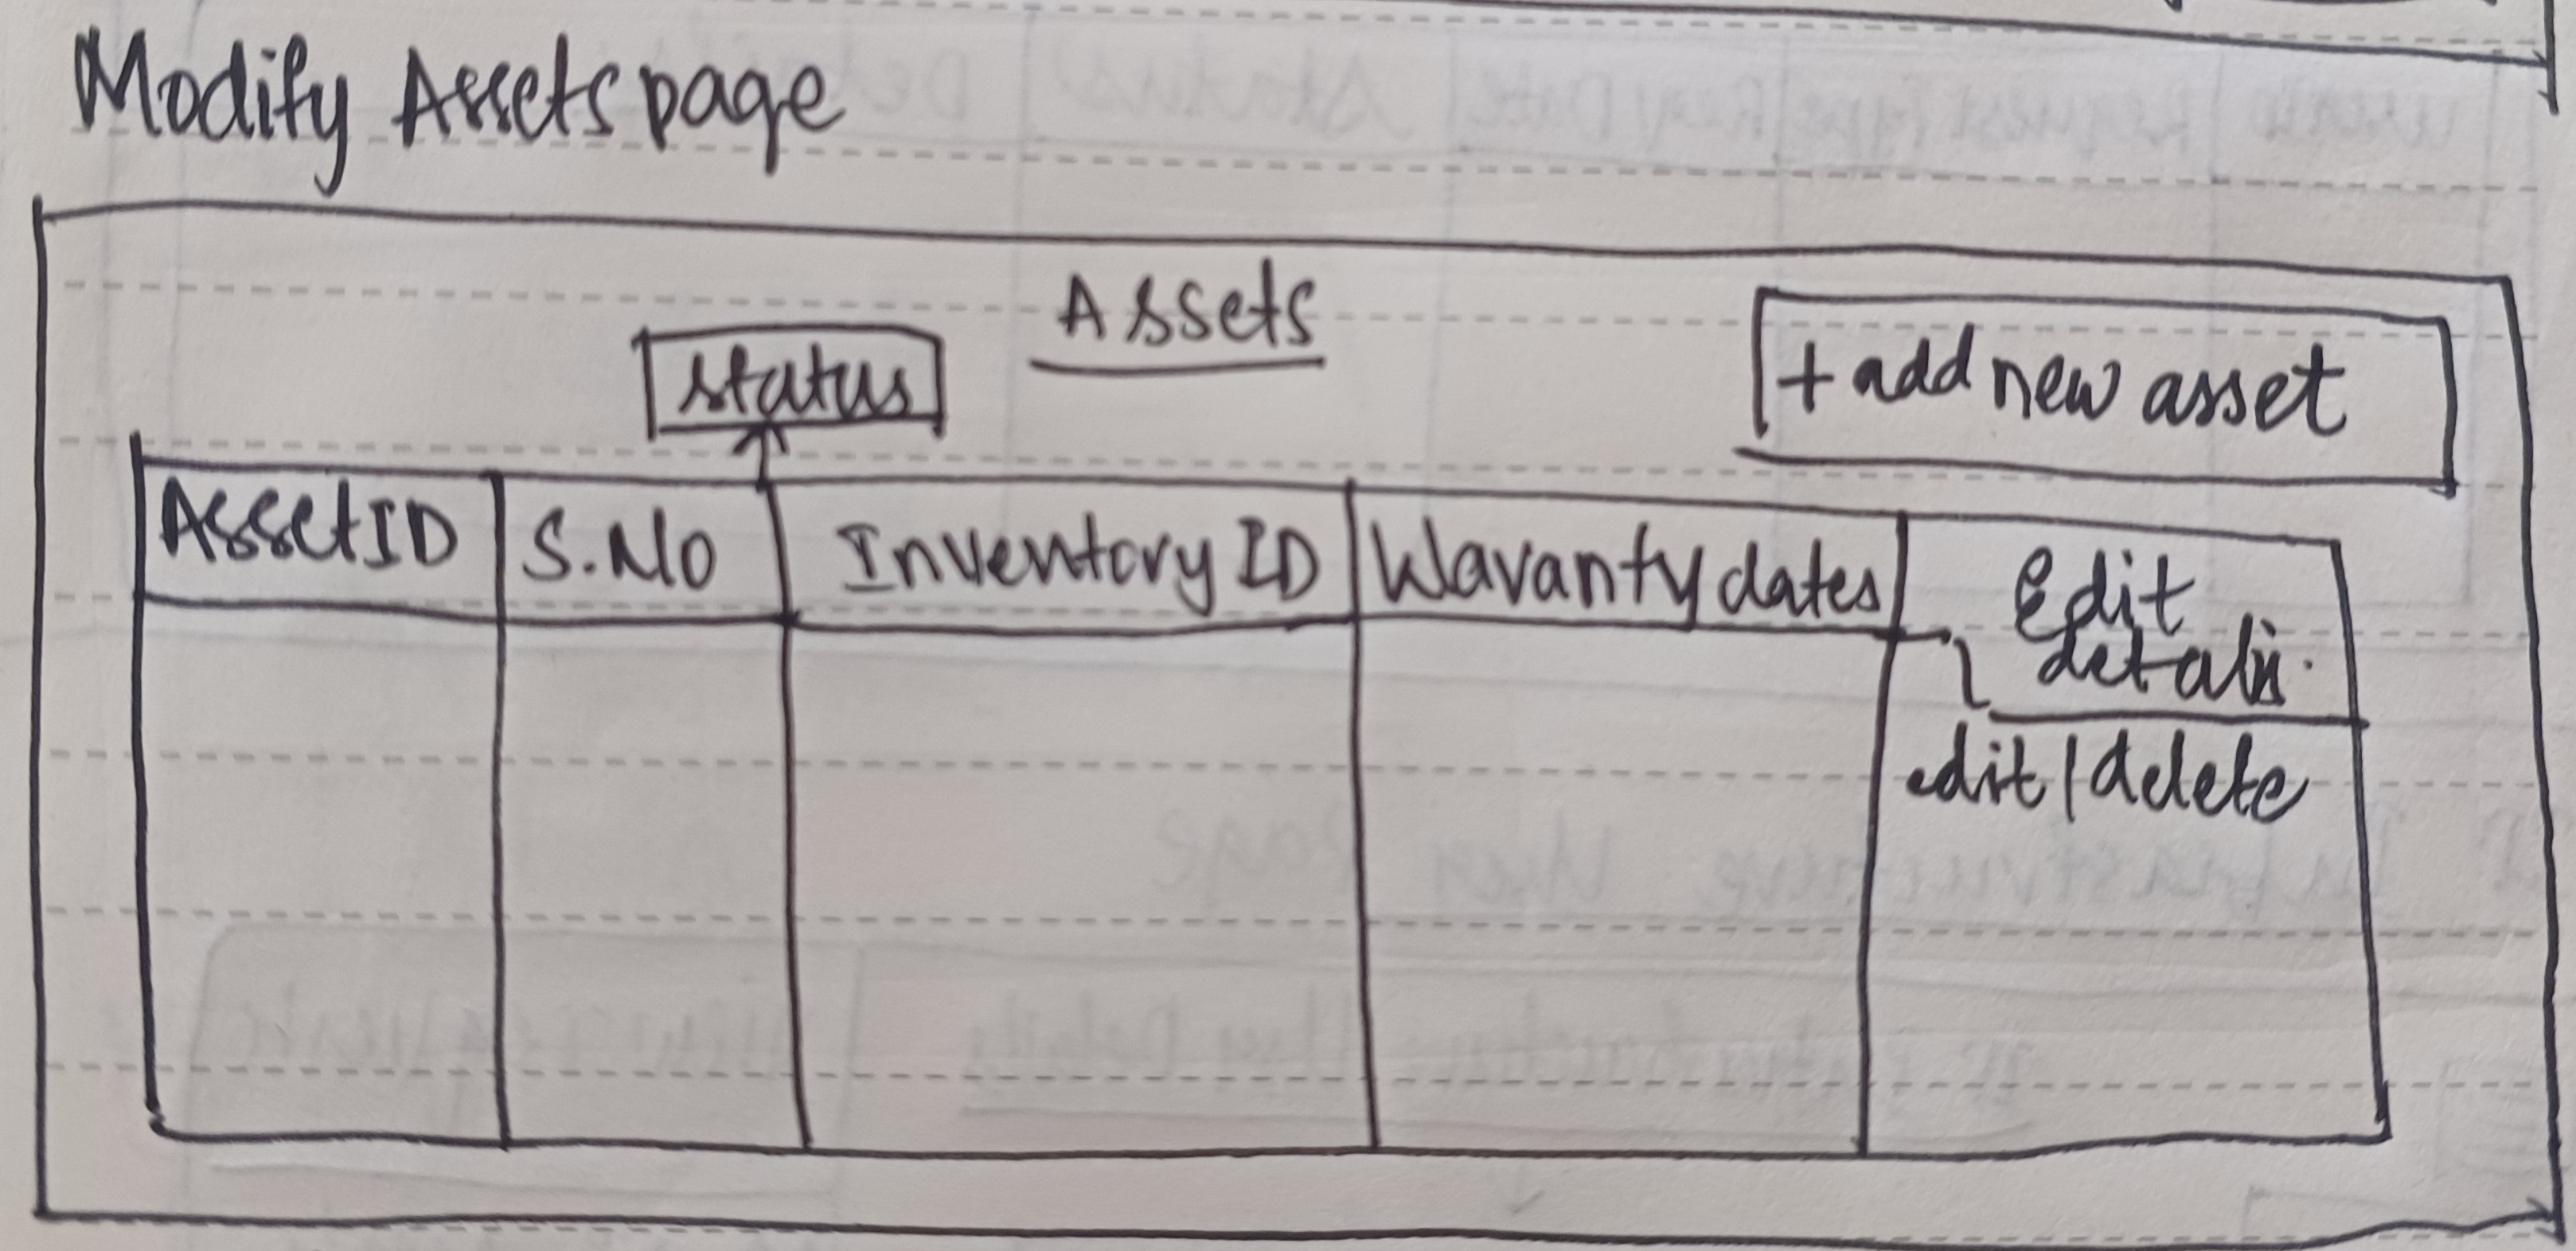 Modify Assets page
Assets
status
+ add new asset
Asset ID
S.No
Inventory ID
Waranty dates
Edit
details.
edit/delete